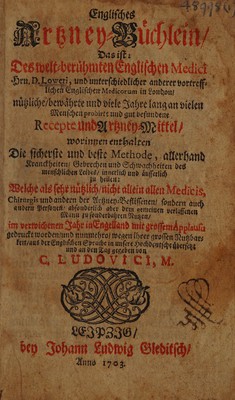 489/84
Englisches
Artzney-Büchlein/
Das ist:
Des welt-berühmten Englischen Medici
Hrn. D. Loweri, und unterschiedlicher anderer vortreff-
lichen Englischer Medicorum in London/
nützliche/ bewährte und viele Jahre lang an vielen
Menschen probirt und gut befundene
Recepte und Artzney-Mittel/
worinnen enthalten
Die sicherste und beste Methode, allerhand
Kranckheiten/ Gebrechen und Schwachheiten des
menschlichen Leibes/ innerlich und äusserlich
zu heilen:
Welche als sehr nützlich/ nicht allein allen Medicis,
Chirurgis und andern der Artzney-Beflissenen/ sondern auch
andern Personen absonderlich aber dem gemeinen
Mann zu sonderbahren Nutzen/
im verwichenen Jahr in Engelland mit grossem Applausu
gedruckt worden und nunmehro/ wegen ihrer grossen Nutzbar-
keit/ aus der Englischen Sprache in unsere Hochdeutsche übersetzt
und an den Tag gegeben von
C. LUDOVICI, M.
LEIPZIG/
bey Johann Ludwig Gleditsch/
Anno 1703.